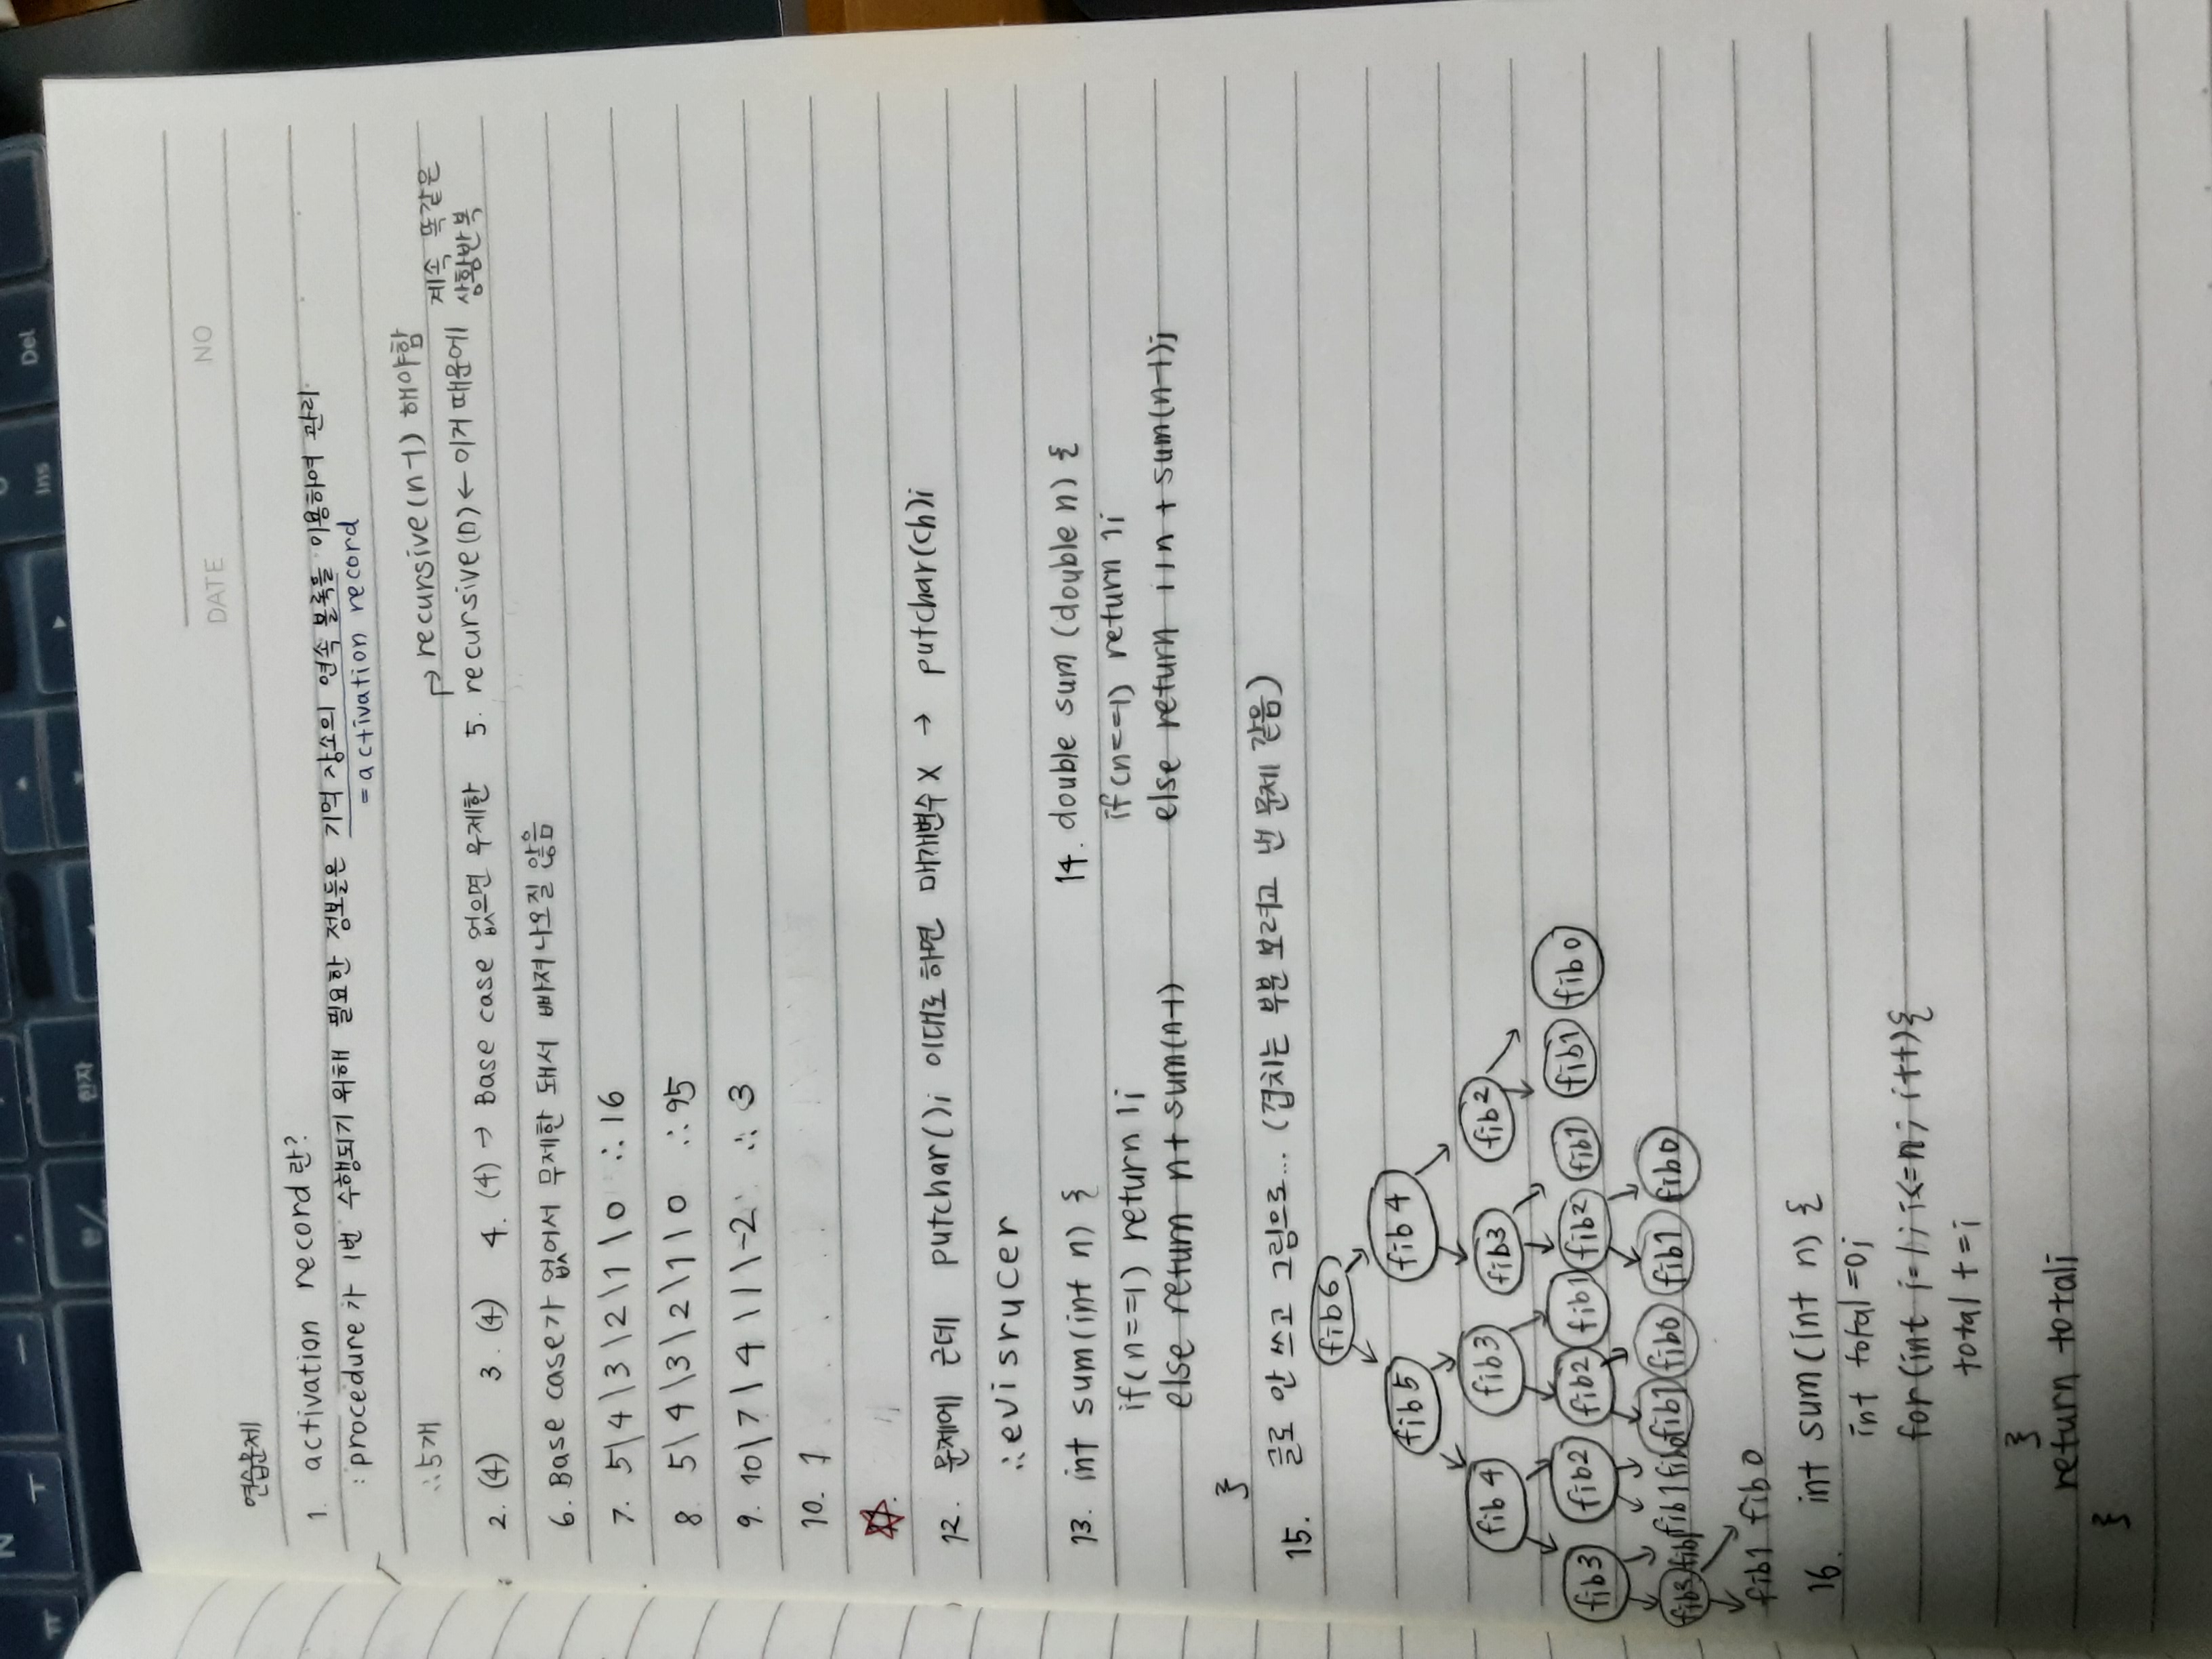 ㅠ
N ㅜ
ㅡ
한/
한자
Ins
Del
DATE NO
연습문제
1. activation record란?
: procedure가 1번 수행되기 위해 필요한 정보들은 기억 장소의 연속 블록들 이용하여 관리
= activation record
∴5개
↱ recursive(n-1) 해야함
2. (4) 3. (4) 4. (4) → Base case 없으면 무제한 5. recursive(n) ← 이거 때문에 계속 똑같은 상황반복
6. Base case가 없어서 무제한 돼서 빠져나오질 않음
7. 5\4\3\2\1\0 ∴16
8. 5\4\3\2\1\0 ∴95
9. 10\7\4\1\-2 ∴3
10. 1
☆.
12. 문제에 근데 putchar(); 이대로 하면 매개변수 X → putchar(ch);
∴evisrucer
13. int sum(int n) {
if(n==1) return 1;
else return n+sum(n-1)
}
14. double sum (double n) {
if(n==1) return 1;
else return 1/n + sum(n-1);
15. 글로 안 쓰고 그림으로... (겹치는 부분 보려고 낸 문제 같음)
fib6
fib5 fib4
fib4 fib3 fib3 fib2
fib3 fib2 fib2 fib1 fib2 fib1 fib1 fib0
fib3 fib1 fib1 fib0 fib1 fib0 fib1 fib0
fib1 fib0
16. int sum(int n) {
int total=0;
for(int i=1; i<=n; i++){
total +=i
}
return total;
}